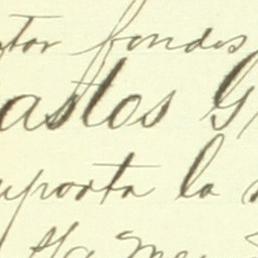 tor fondos
astos G
mporta la